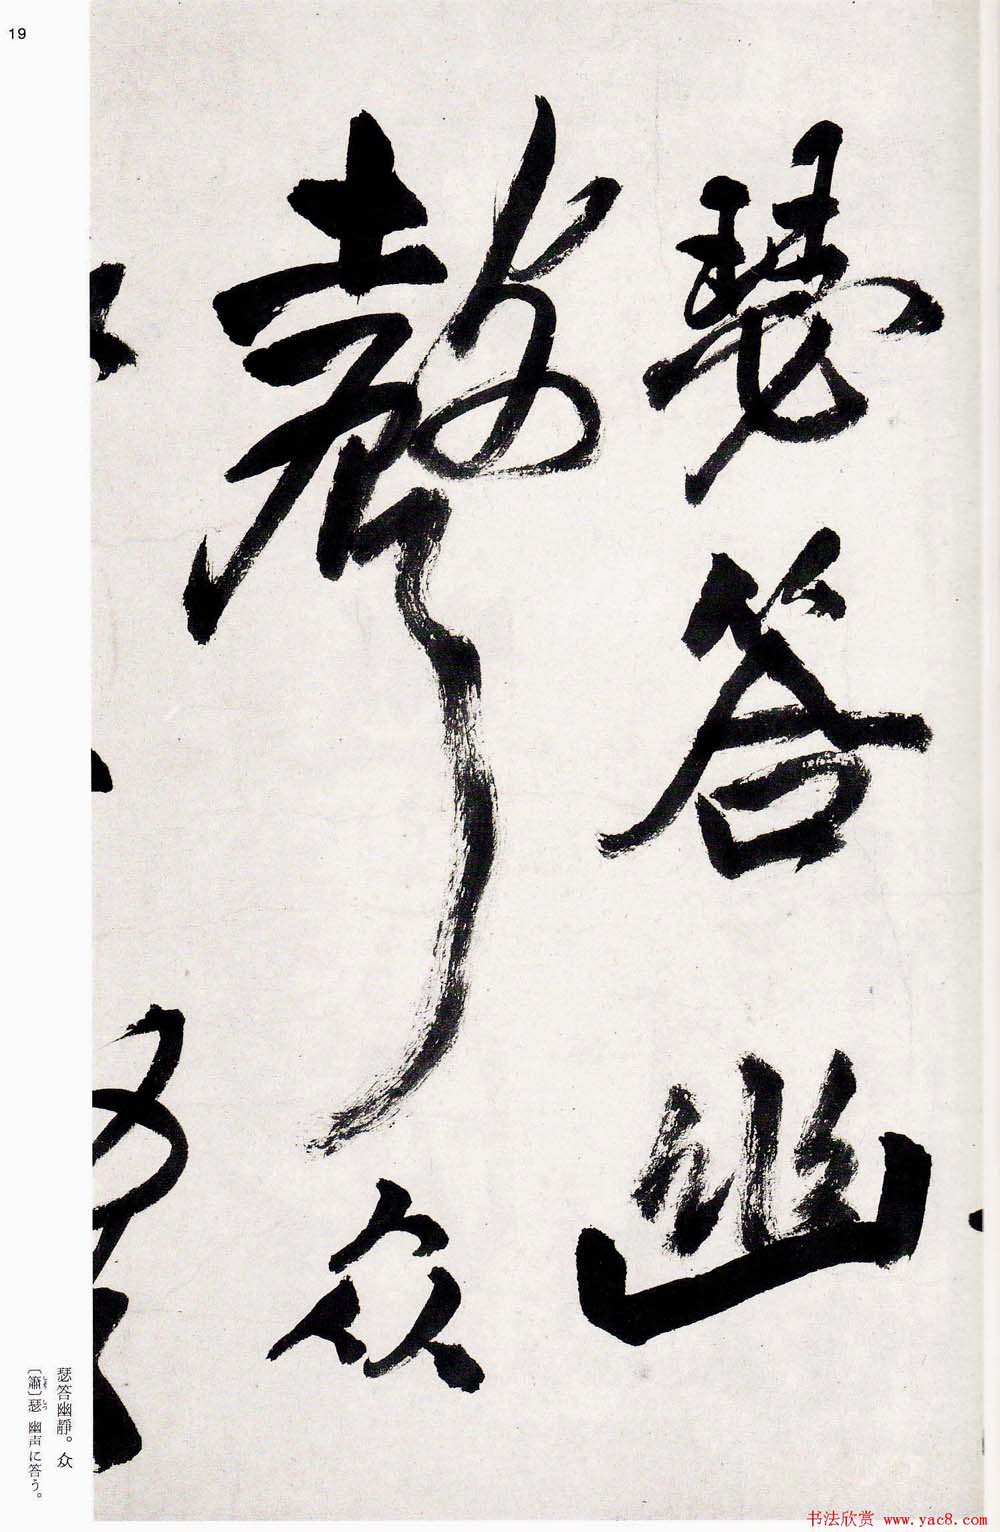 19
瑟答幽
聲众
瑟答幽靜。众
〔簫〕瑟 幽声に答う。
书法欣赏 www.yac8.com